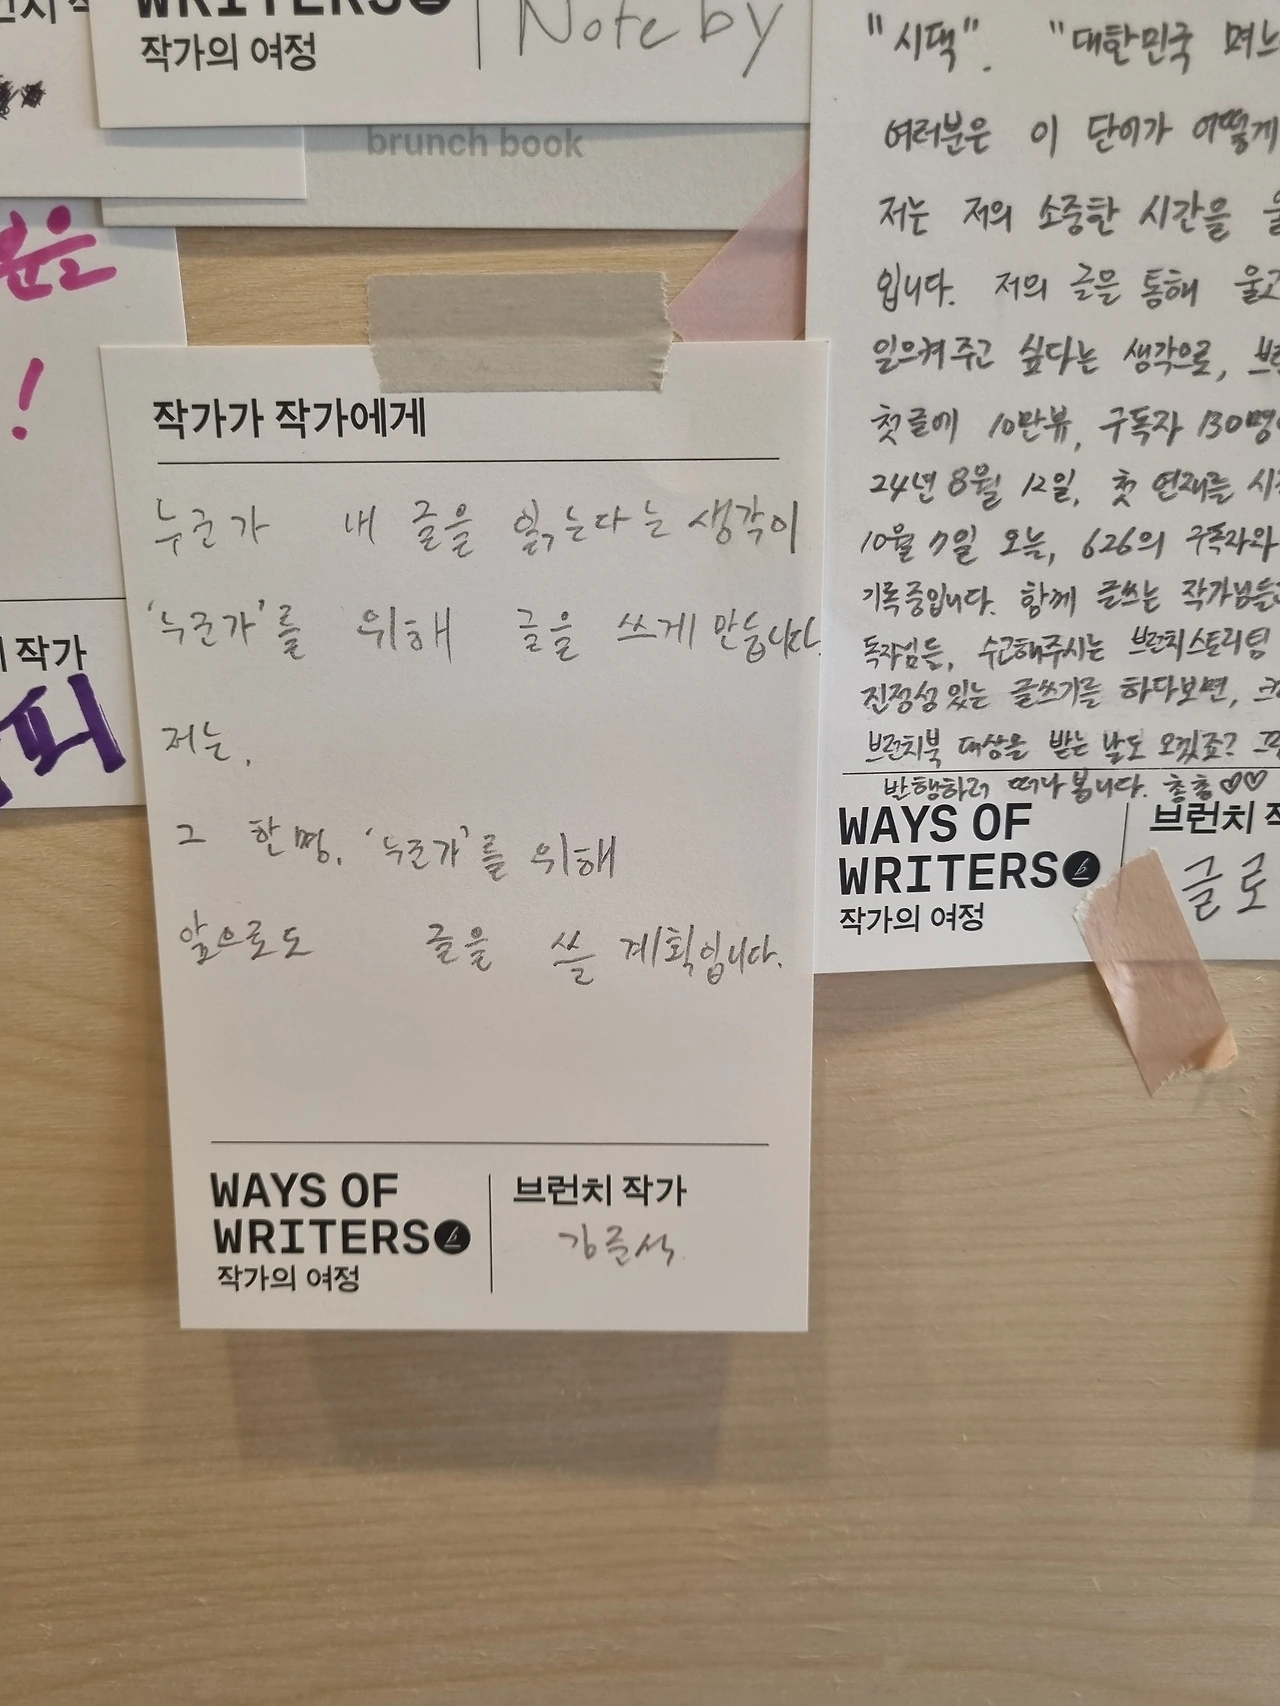 WRITERS
작가의 여정
Note by
brunch book
분은
!
작가
피
작가가 작가에게
누군가 내 글을 읽는다는 생각이
'누군가'를 위해 글을 쓰게 만듭니다.
저는,
그 한 명, '누군가'를 위해
앞으로도 글을 쓸 계획입니다.
WAYS OF
WRITERS
작가의 여정
브런치 작가
김글석
"시댁". "대한민국 며느
여러분은 이 단어가 어떻게
저는 저의 소중한 시간을
입니다. 저의 글을 통해 울고
일으켜주고 싶다는 생각으로, 브런
첫글에 10만뷰, 구독자 130명
24년 8월 12일, 첫 연재를 시작
10월 7일 오늘, 626의 구독자와
기록중입니다. 함께 글쓰는 작가님들
독자님들, 수고해주시는 브런치스토리팀
진정성있는 글쓰기를 하다보면,
브런치북 대상을 받는 날도 오겠죠?
발행하러 떠나봅니다. 총총♡♡
WAYS OF
WRITERS
작가의 여정
브런치 작
글로